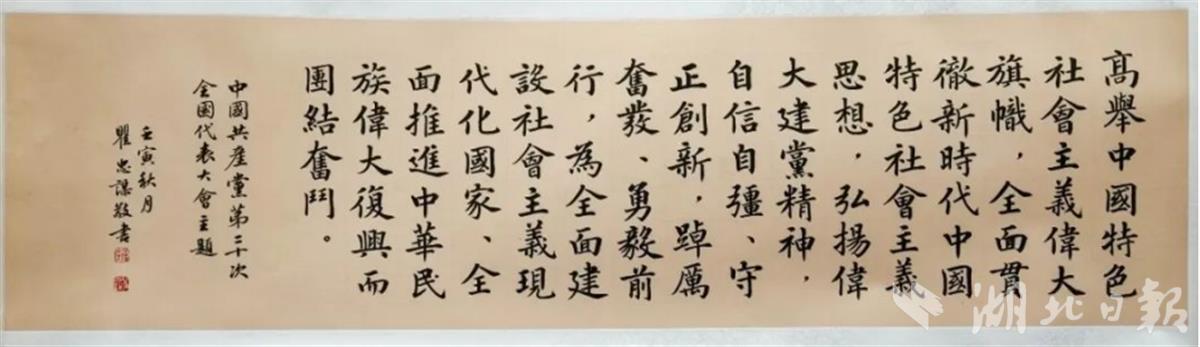 高舉中國特色
社會主義偉大
旗幟，全面貫
徹新時代中國
特色社會主義
思想，弘揚偉
大建黨精神，
自信自彊、守
正創新，踔厲
奮發、勇毅前
行，為全面建
設社會主義現
代化國家、全
面推進中華民
族偉大復興而
團結奮鬥。
中國共產黨第二十次
全國代表大會主題
壬寅秋月
瞿忠謀敬書
湖北日報